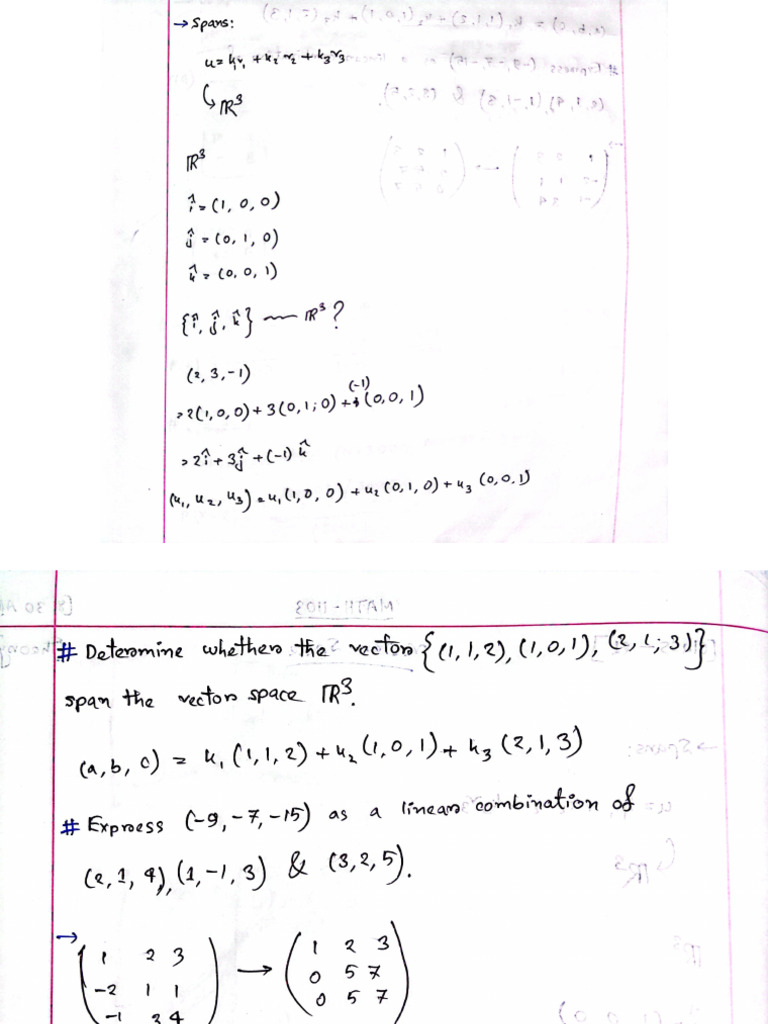 → Spans:
u = k₁v₁ + k₂v₂ + k₃v₃
↳ ℝ³
ℝ³
î = (1, 0, 0)
ĵ = (0, 1, 0)
k̂ = (0, 0, 1)
{î, ĵ, k̂} — ℝ³ ?
(2, 3, -1)
= 2(1, 0, 0) + 3(0, 1, 0) + (-1)(0, 0, 1)
= 2î + 3ĵ + (-1) k̂
(u₁, u₂, u₃) = u₁(1, 0, 0) + u₂(0, 1, 0) + u₃(0, 0, 1)
# Determine whether the vector {(1, 1, 2), (1, 0, 1), (2, 1, 3)}
span the vector space ℝ³.
(a, b, c) = k₁(1, 1, 2) + k₂(1, 0, 1) + k₃(2, 1, 3)
# Express (-9, -7, -15) as a linear combination of
(2, 1, 4), (1, -1, 3) & (3, 2, 5).
→ (1 2 3) → (1 2 3)
(-2 1 1) (0 5 7)
(-1 3 4) (0 5 7)